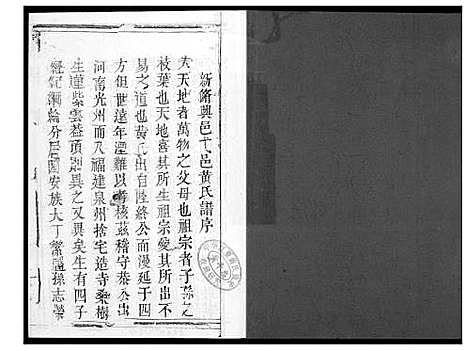 新脩興邑弋邑黃氏譜序
夫天地者萬物之父母也祖宗者子孫之
枝葉也天地喜其所生祖宗愛其所出不
易之道也黃氏出自陸終公而漫延于四
方但世遠年湮難以考核茲稽守恭公出
河南光州而入福建泉州捨宅造寺桑樹
生蓮紫雲蓋頂異之又異矣生有四子
經紀綱綸分居安族大丁繁孫志榮